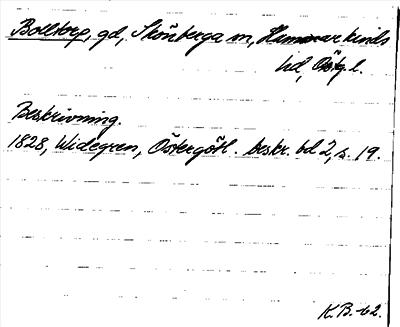 Bolltorp, gd, Skönberga sn, Hammarkinds
hd, Östg. l.
Beskrivning.
1828, Widegren, Östergötl. beskr. bd 2, s. 19.
K.B.-62.